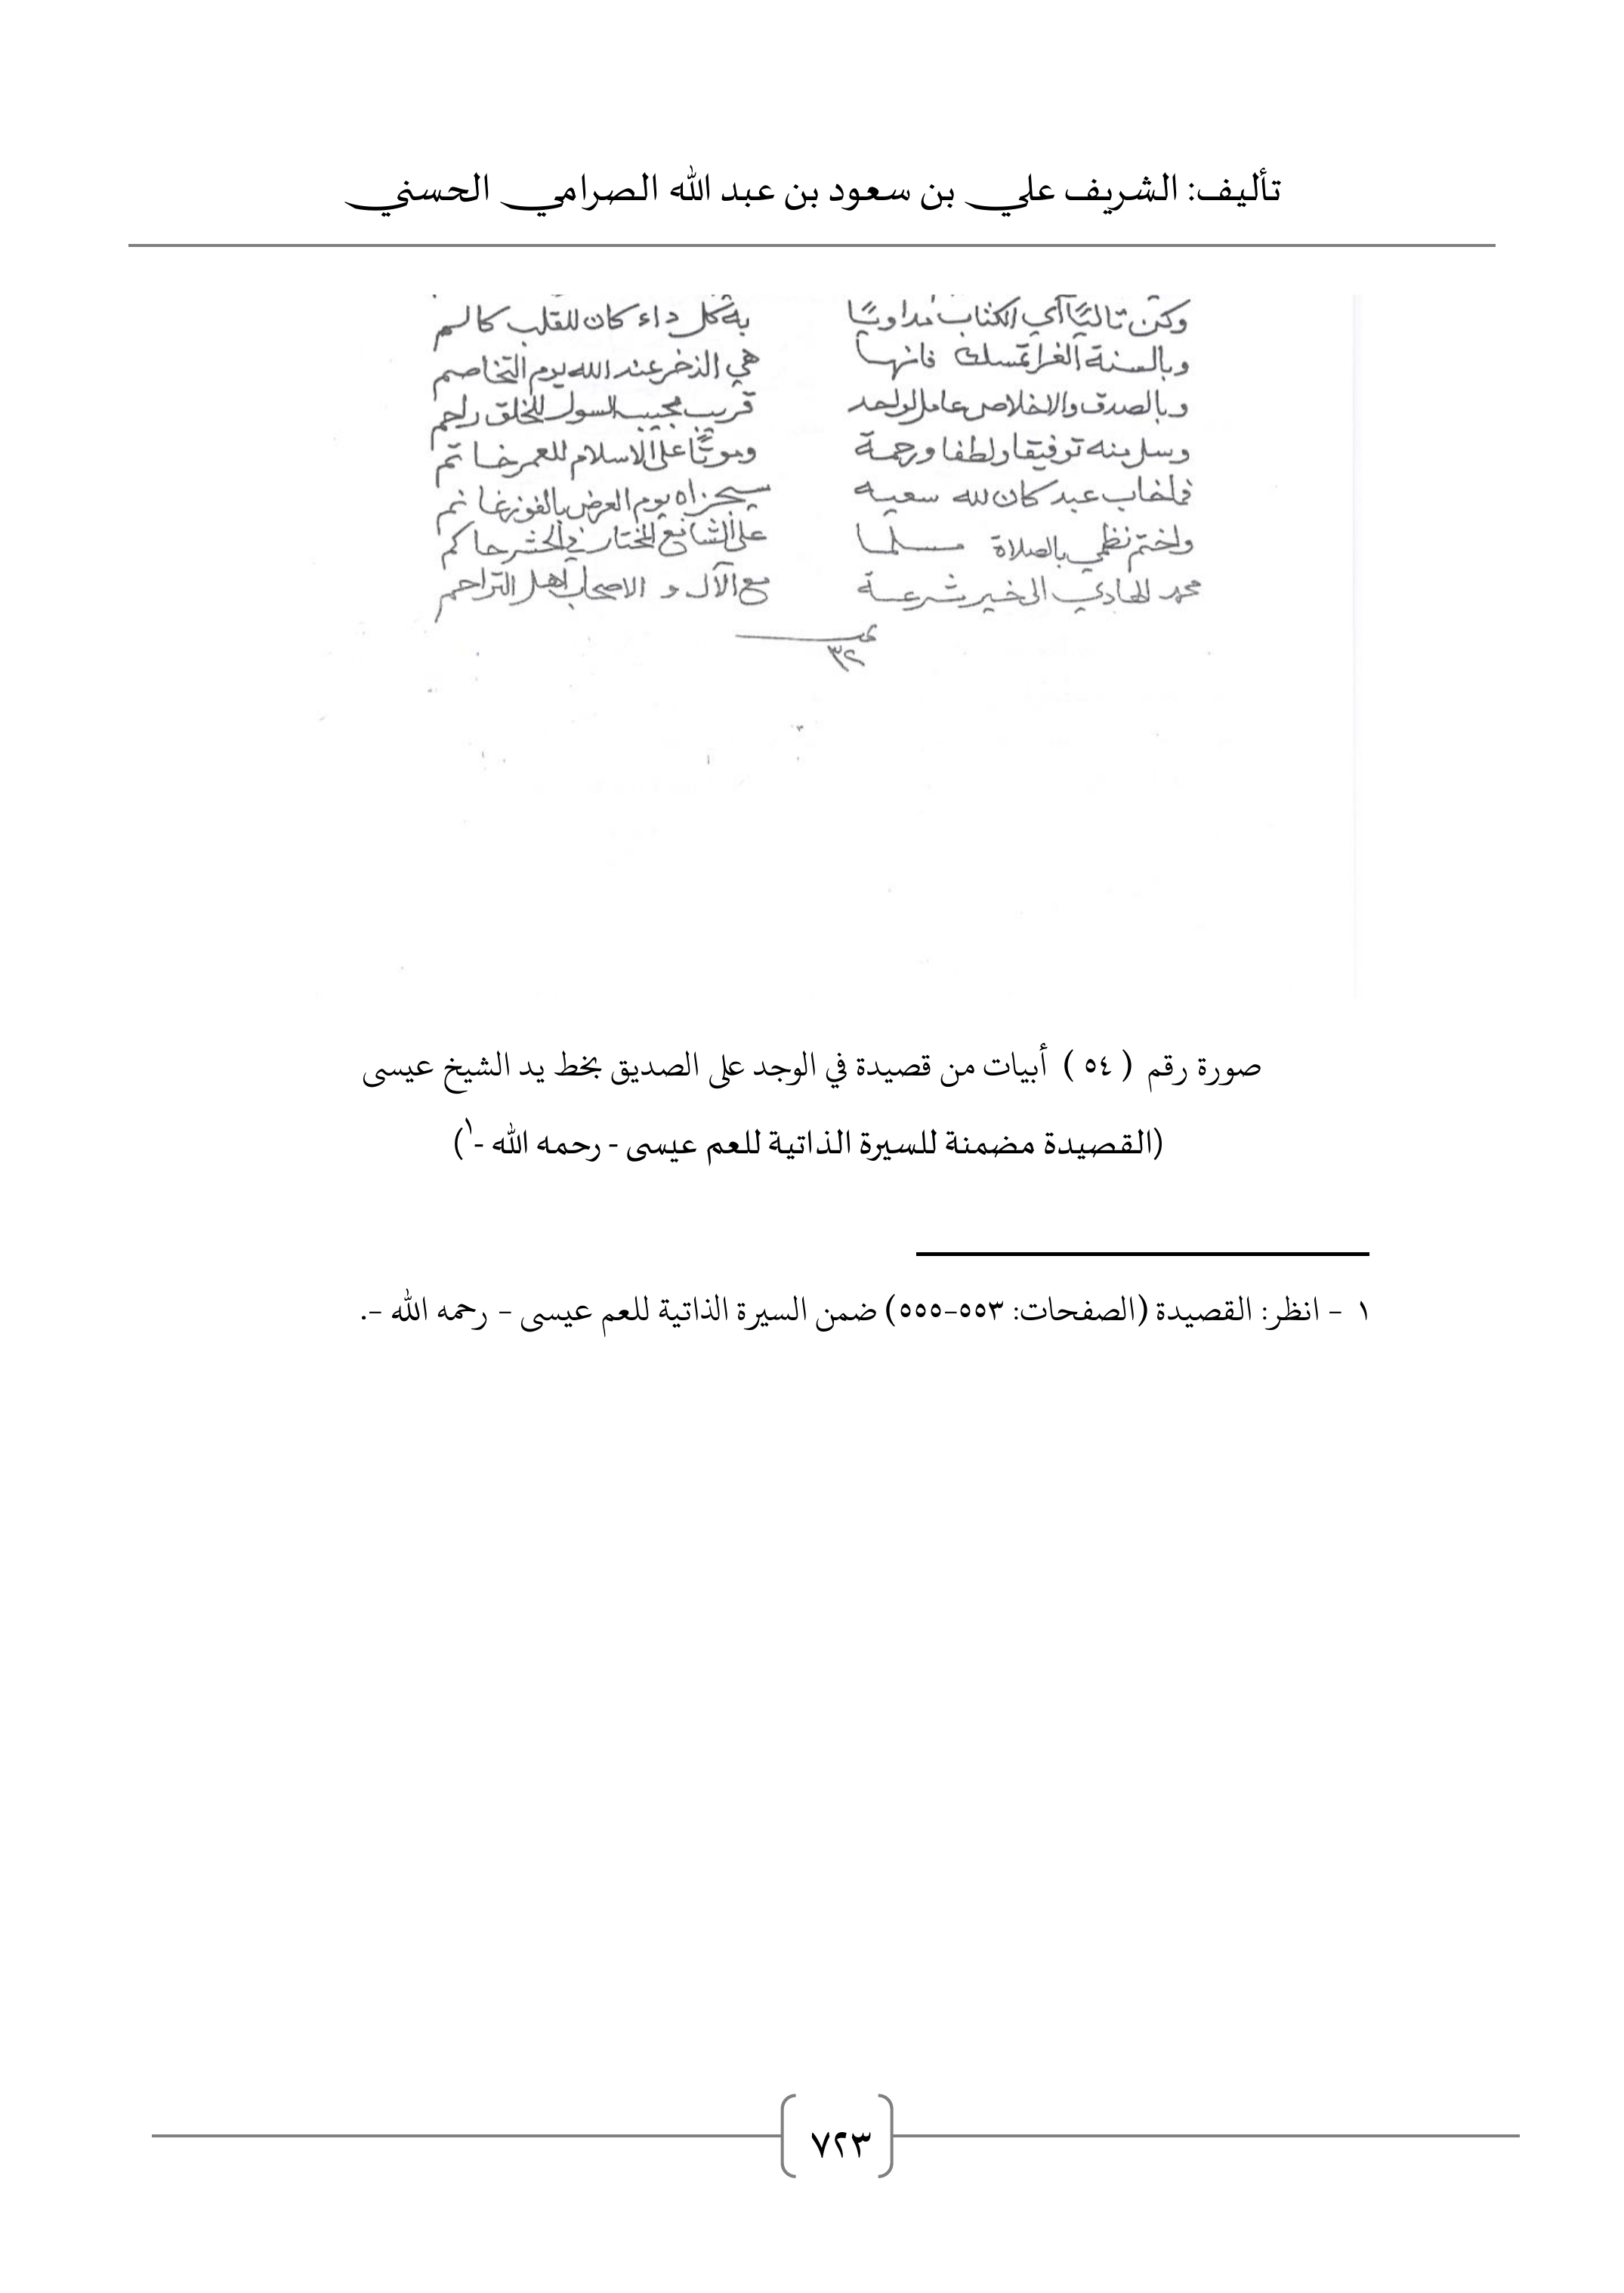 تأليف: الشريف علي بن سعود بن عبد الله الصرامي الحسني
وكن تاليًا آي الكتاب مداويًا به كل داء كان للقلب كالسم
وبالسنة الغرا تمسك فانها هي الذخر عند الله يوم التخاصم
وبالصدق والاخلاص عامل لواحد قريب مجيب السول للخلق راحم
وسل منه توفيقا ولطفا ورحمة وموتًا على الاسلام للعمر خاتم
فما خاب عبد كان لله سعيه سيجزاه يوم العرض بالفوز غانم
واختم نظمي بالصلاة مسلما على الشافع المختار في الحشر حاكم
محمد الهادي الى خير شرعة مع الآل و الاصحاب اهل التراحم
٣٢
صورة رقم ( ٥٤ ) أبيات من قصيدة في الوجد على الصديق بخط يد الشيخ عيسى
(القصيدة مضمنة للسيرة الذاتية للعم عيسى - رحمه الله -١)
١ - انظر: القصيدة (الصفحات: ٥٥٣-٥٥٥) ضمن السيرة الذاتية للعم عيسى - رحمه الله -.
٧٢٣